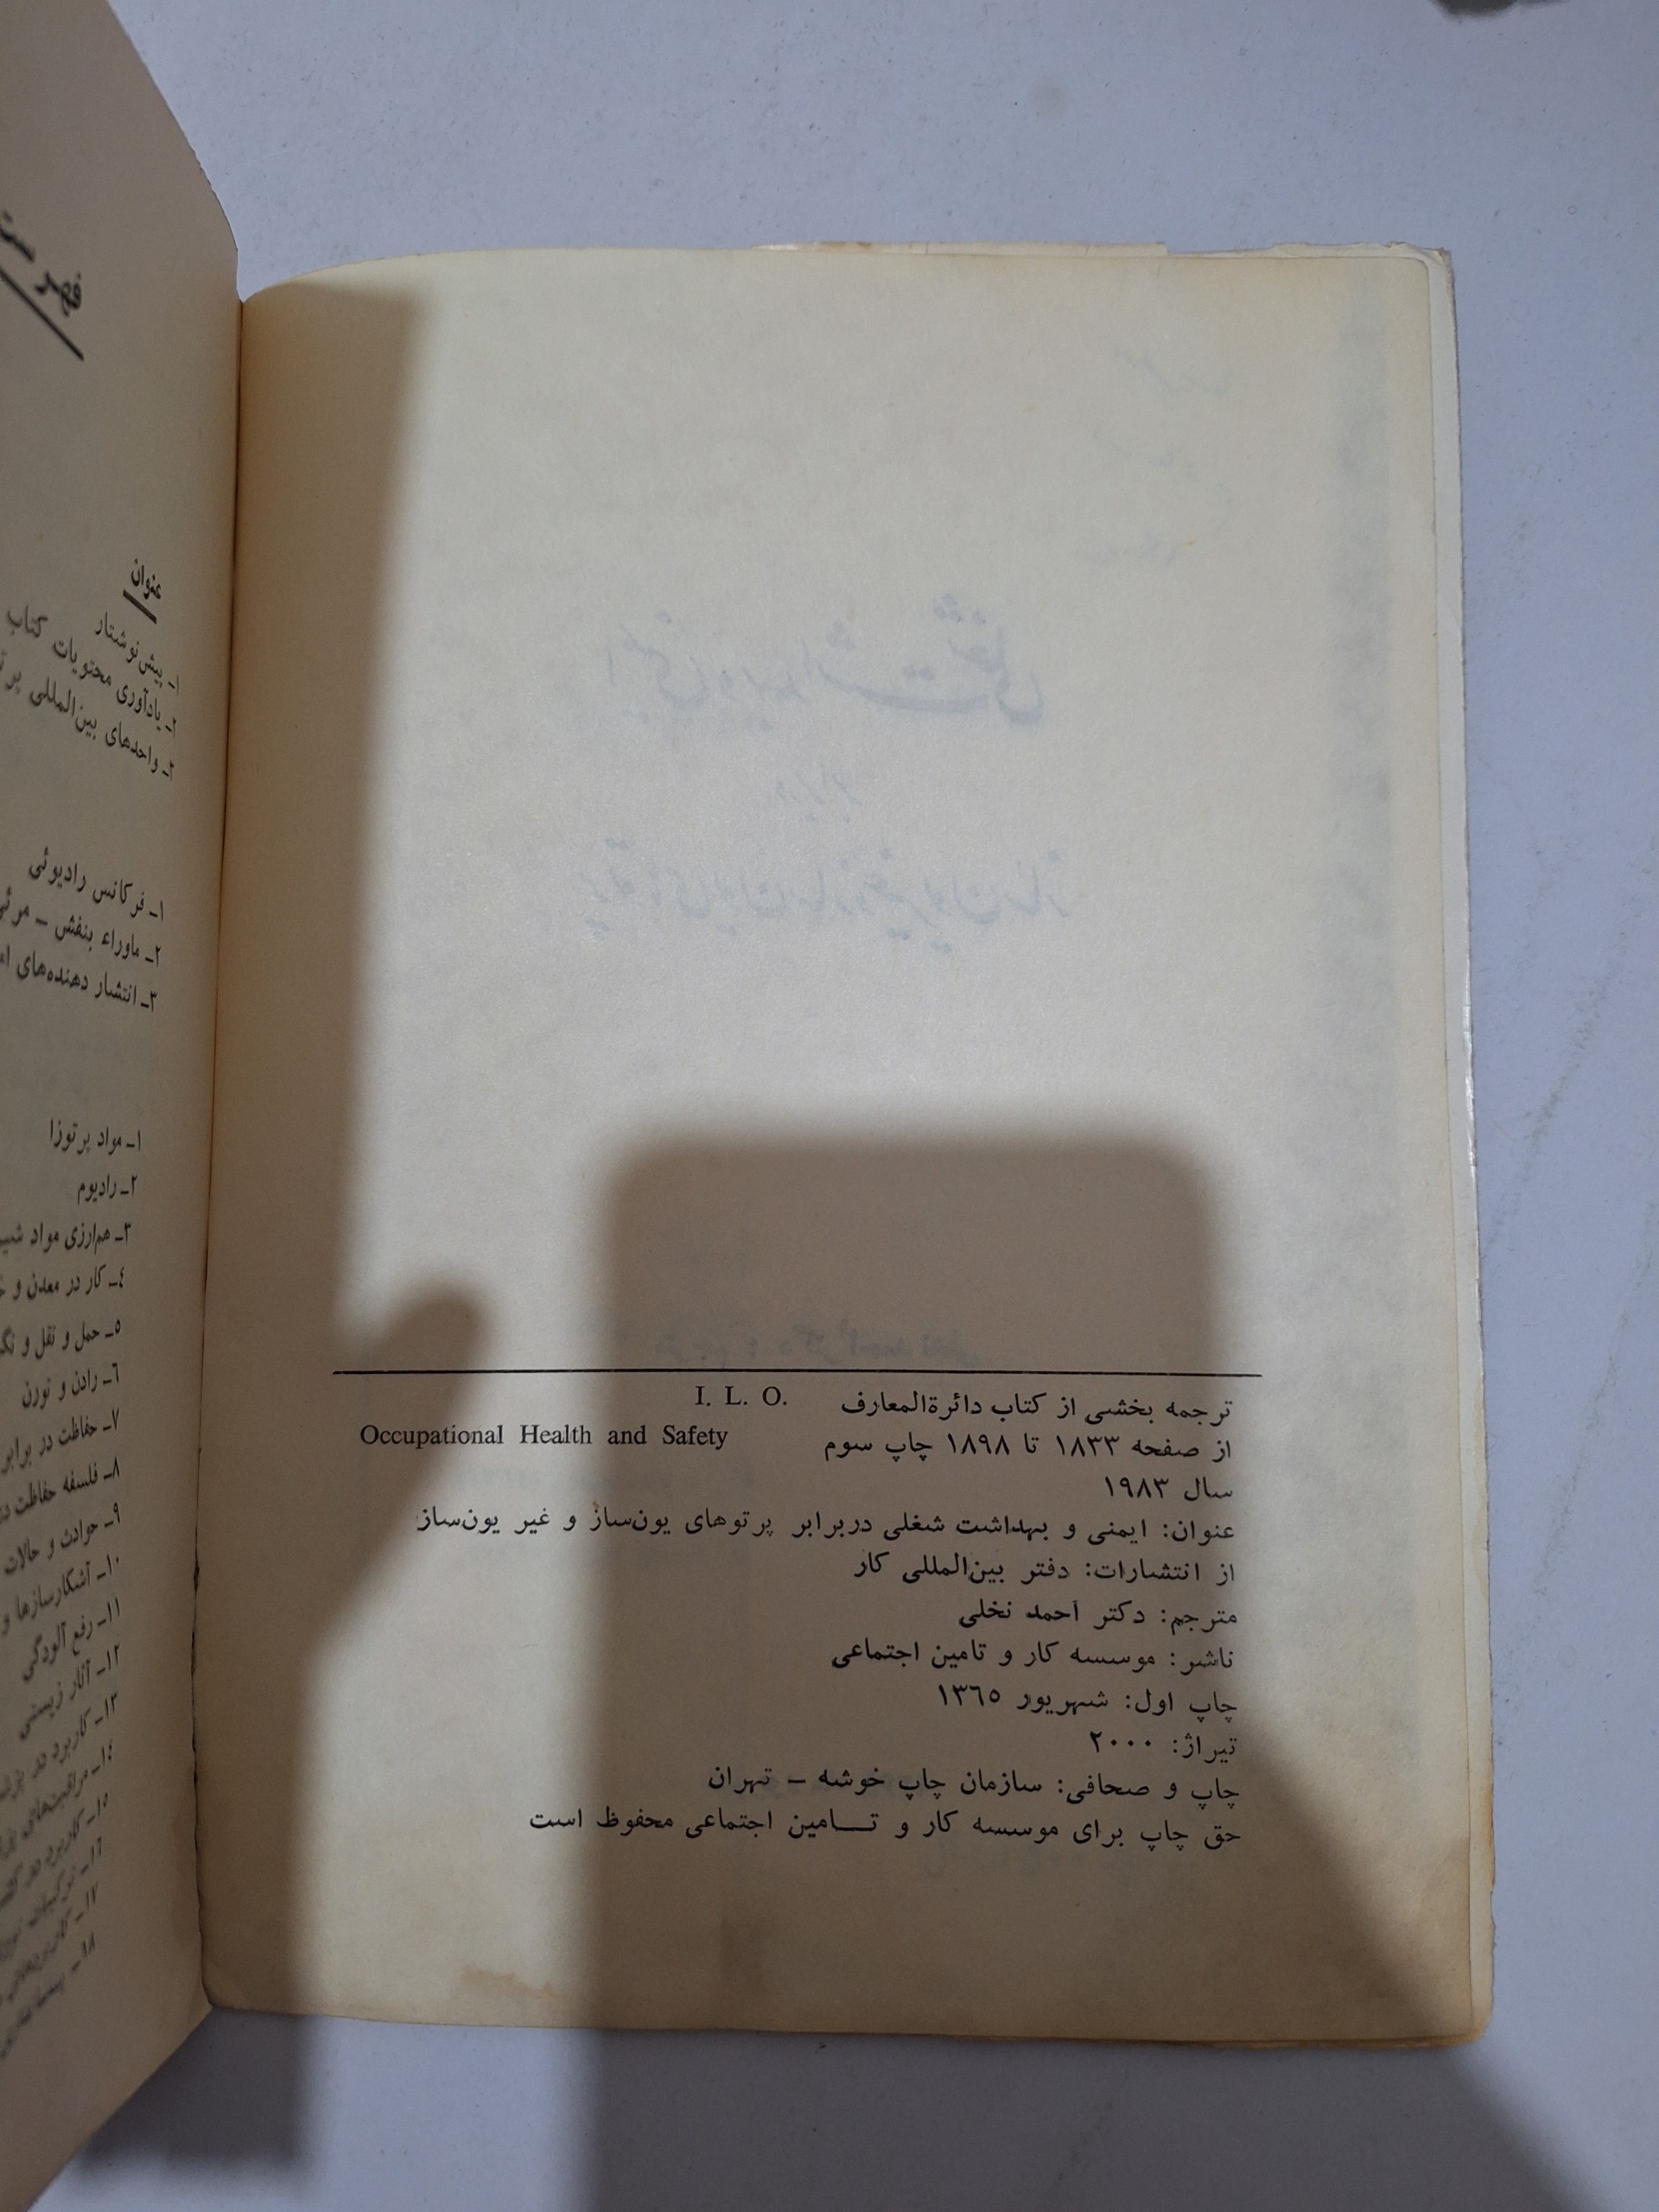 ترجمه بخشی از کتاب دائرةالمعارف I. L. O.
از صفحه ۱۸۳۳ تا ۱۸۹۸ چاپ سوم Occupational Health and Safety
سال ۱۹۸۳
عنوان: ایمنی و بهداشت شغلی دربرابر پرتوهای یون‌ساز و غیر یون‌ساز
از انتشارات: دفتر بین‌المللی کار
مترجم: دکتر احمد نخلی
ناشر: موسسه کار و تامین اجتماعی
چاپ اول: شهریور ۱۳٦٥
تیراژ: ۲۰۰۰
چاپ و صحافی: سازمان چاپ خوشه – تهران
حق چاپ برای موسسه کار و تـــامین اجتماعی محفوظ است
عنوان
۱– پیش‌نوشتار
۲– یادآوری محتویات کتاب
۳– واحدهای بین‌المللی
۱– فرکانس رادیوئی
۲– ماوراء بنفش –
۳– انتشار دهنده‌های
۱– مواد پرتوزا
۲– رادیوم
۳– هم‌ارزی مواد
٤– کار در معدن و
٥– حمل و نقل و
٦– رادن و تورن
۷– حفاظت در برابر
۸– فلسفه حفاظت
۹– حوادث و حالات
۱۰– آشکارسازها و
۱۱– رفع آلودگی
۱۲– آثار زیستی
۱۳– کاربرد در
۱٤– مراقبت‌های
۱٥– کاربرد در